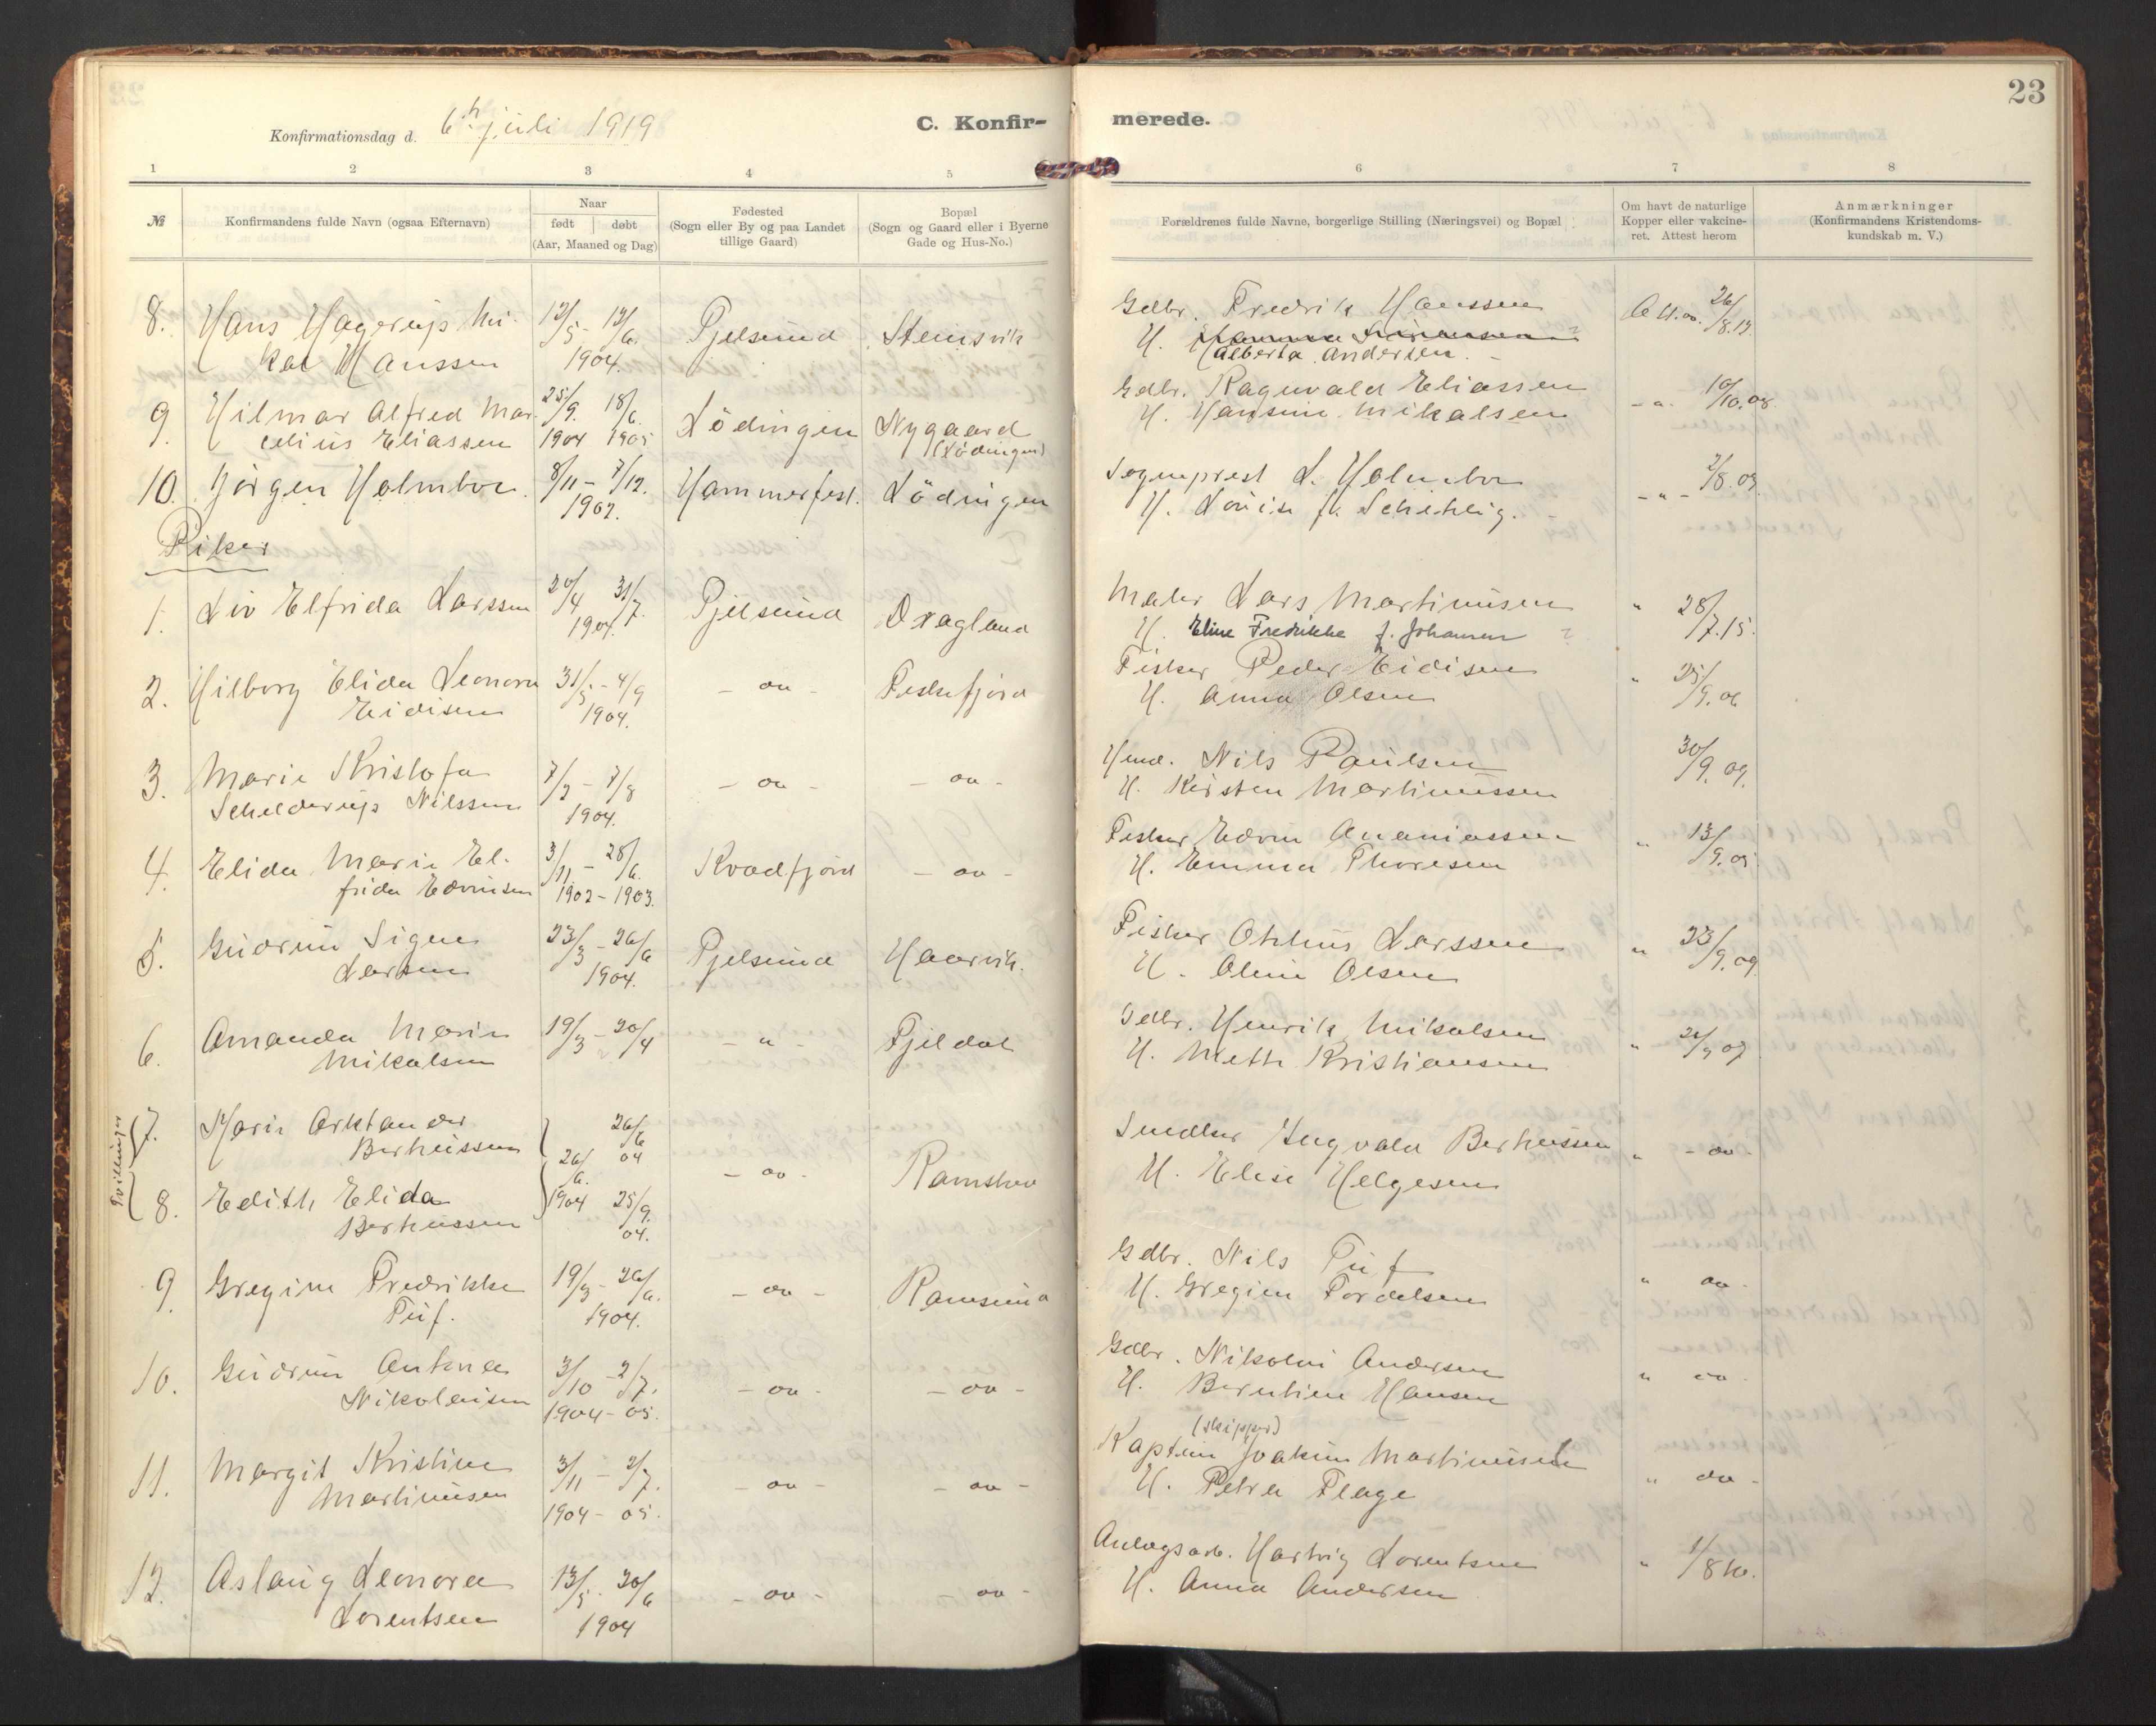 23
Konfirmationsdag d. 6te juli 1919
C. Konfir-
merede.
1 2 3 4 5 6 7 8
№
Konfirmandens fulde Navn (ogsaa Efternavn)
Naar
født | døbt
(Aar, Maaned og Dag)
Fødested
(Sogn eller By og paa Landet
tillige Gaard)
Bopæl
(Sogn og Gaard eller i Byerne
Gade og Hus-No.)
Forældrenes fulde Navne, borgerlige Stilling (Næringsvei) og Bopæl
Om havt de naturlige
Kopper eller vakcine-
ret. Attest herom
Anmærkninger
(Konfirmandens Kristendoms-
kundskab m. V.)
8. Hans Hagerup Mi- 12/5 - 12/6 Fjelsund Stemsvik Gdbr. Fredrik Hanssen 26/8.13
kal Hanssen 1904. H. Alberta Andersen
9. Hilmar Alfred Mar- 25/9. 18/6. Lödingen Nygaard Gdbr. Ragnvald Eliassen 10/10.08
celius Eliassen 1904 1905 (Lödingen) H. Hansine Mikalsen
10. Jörgen Holmboe 8/11 - 7/12. Hammerfest. Lödingen Sogneprest L. Holmboe 2/8.09
1902. H. Louise f.
Piker
1. Liv Elfrida Larssen 20/4 31/7. Fjelsund Dragland Maler Lars Martinussen " 28/7.15.
1904. H. Eline Fredrikke f. Johansen ?
2. Hilborg Elida Leonora 31/5 - 4/9 - do - Fiskefjord Fisker Peder Eidisen " 25/9.06
Eidisen 1904. H. Anna Olsen
3. Marie Kristofa 7/2 - 7/8 - do - - do - Nils Paulsen 30/9.09.
Schelderup Nilssen 1904. H. Kirsten Martinussen
4. Elida Marie El- 3/11 - 28/6. Kvædfjord - do - Fisker Edvin Ananiassen " 13/9.05
frida Edvinsen 1902 - 1903. H. Emma Thoresen
5. Gudrun Signe 23/3 - 26/6 Fjelsund Haarvik. Fisker Larssen " 23/9.09
Larsen 1904. H. Oline Olsen
6. Amanda Marie 19/3 - 20/4 - " - Fjeldal Gdbr. Henrik Mikalsen " 07
Mikalsen H. Mette Kristiansen
Tvillinger
7. Marie Arktander 26/6 Snedker Ingvald Berteussen " - do -
Berteussen 26/6. 04 - do - Ramsbo H. Elise Helgesen
8. Edith Elida 1904 25/9.
Berteussen 04.
9. Gregine Fredrikke 19/3 - 26/6. - do - Ramsund Gdbr. Nils Tuf " do -
Tuf. 1904. H. Gregine Tordelsen
10. Gudrun Antona 3/10 - 2/7. - do - - do - Gdbr. Nikolai Andersen " do -
Nikolaisen 1904 - 05. H. Berntine Hansen
(skipper)
11. Margit Kristine 3/11 - 2/7. - do - - do - Kaptein Joakim Martinussen " do -
Martinusen 1904 - 05. H. Petra Flage
12. Aslaug Leonora 13/5 - 30/6 - do - - do - Anlægsarb. Hartvig Lorentsen " 1/8 10.
Lorentsen 1904 H. Anna Andersen